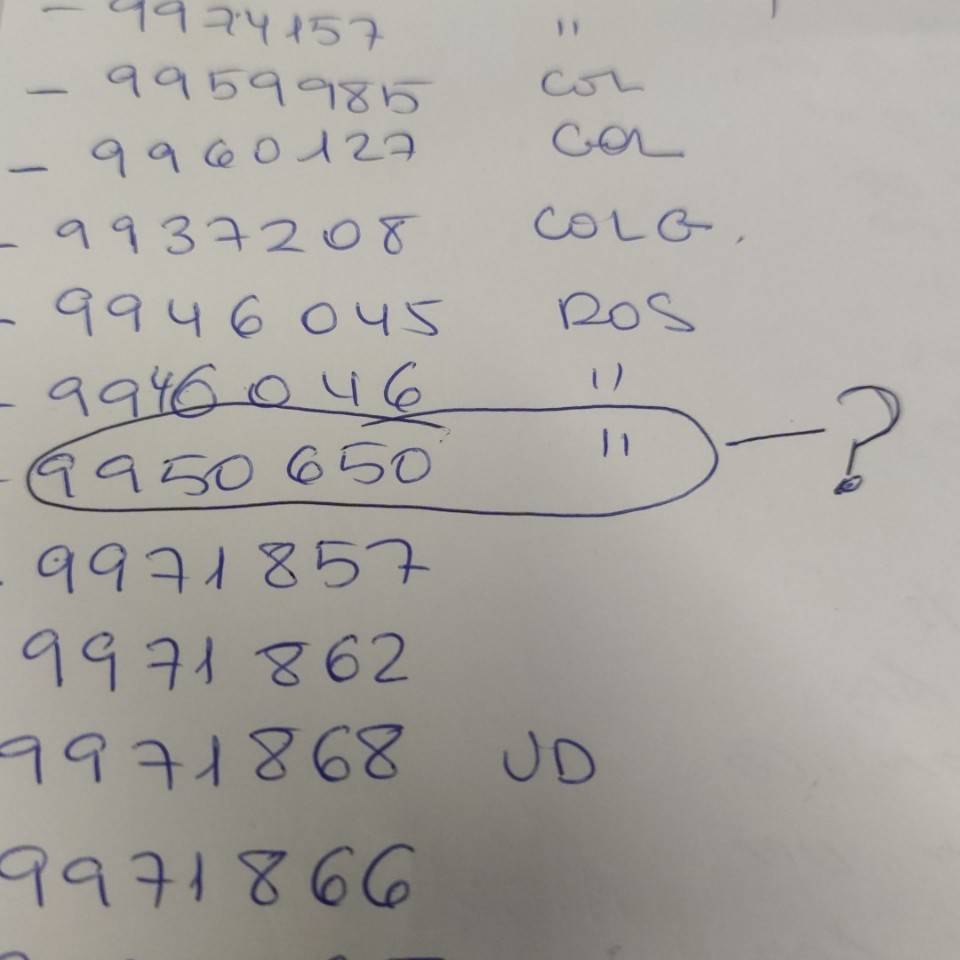 - 9974157 "
- 9959985 COL
- 9960127 COL
- 9937208 COLG.
- 9946045 ROS
- 9946046 "
- 9950650 " — ?
- 9971857
9971862
9971868 UD
9971866